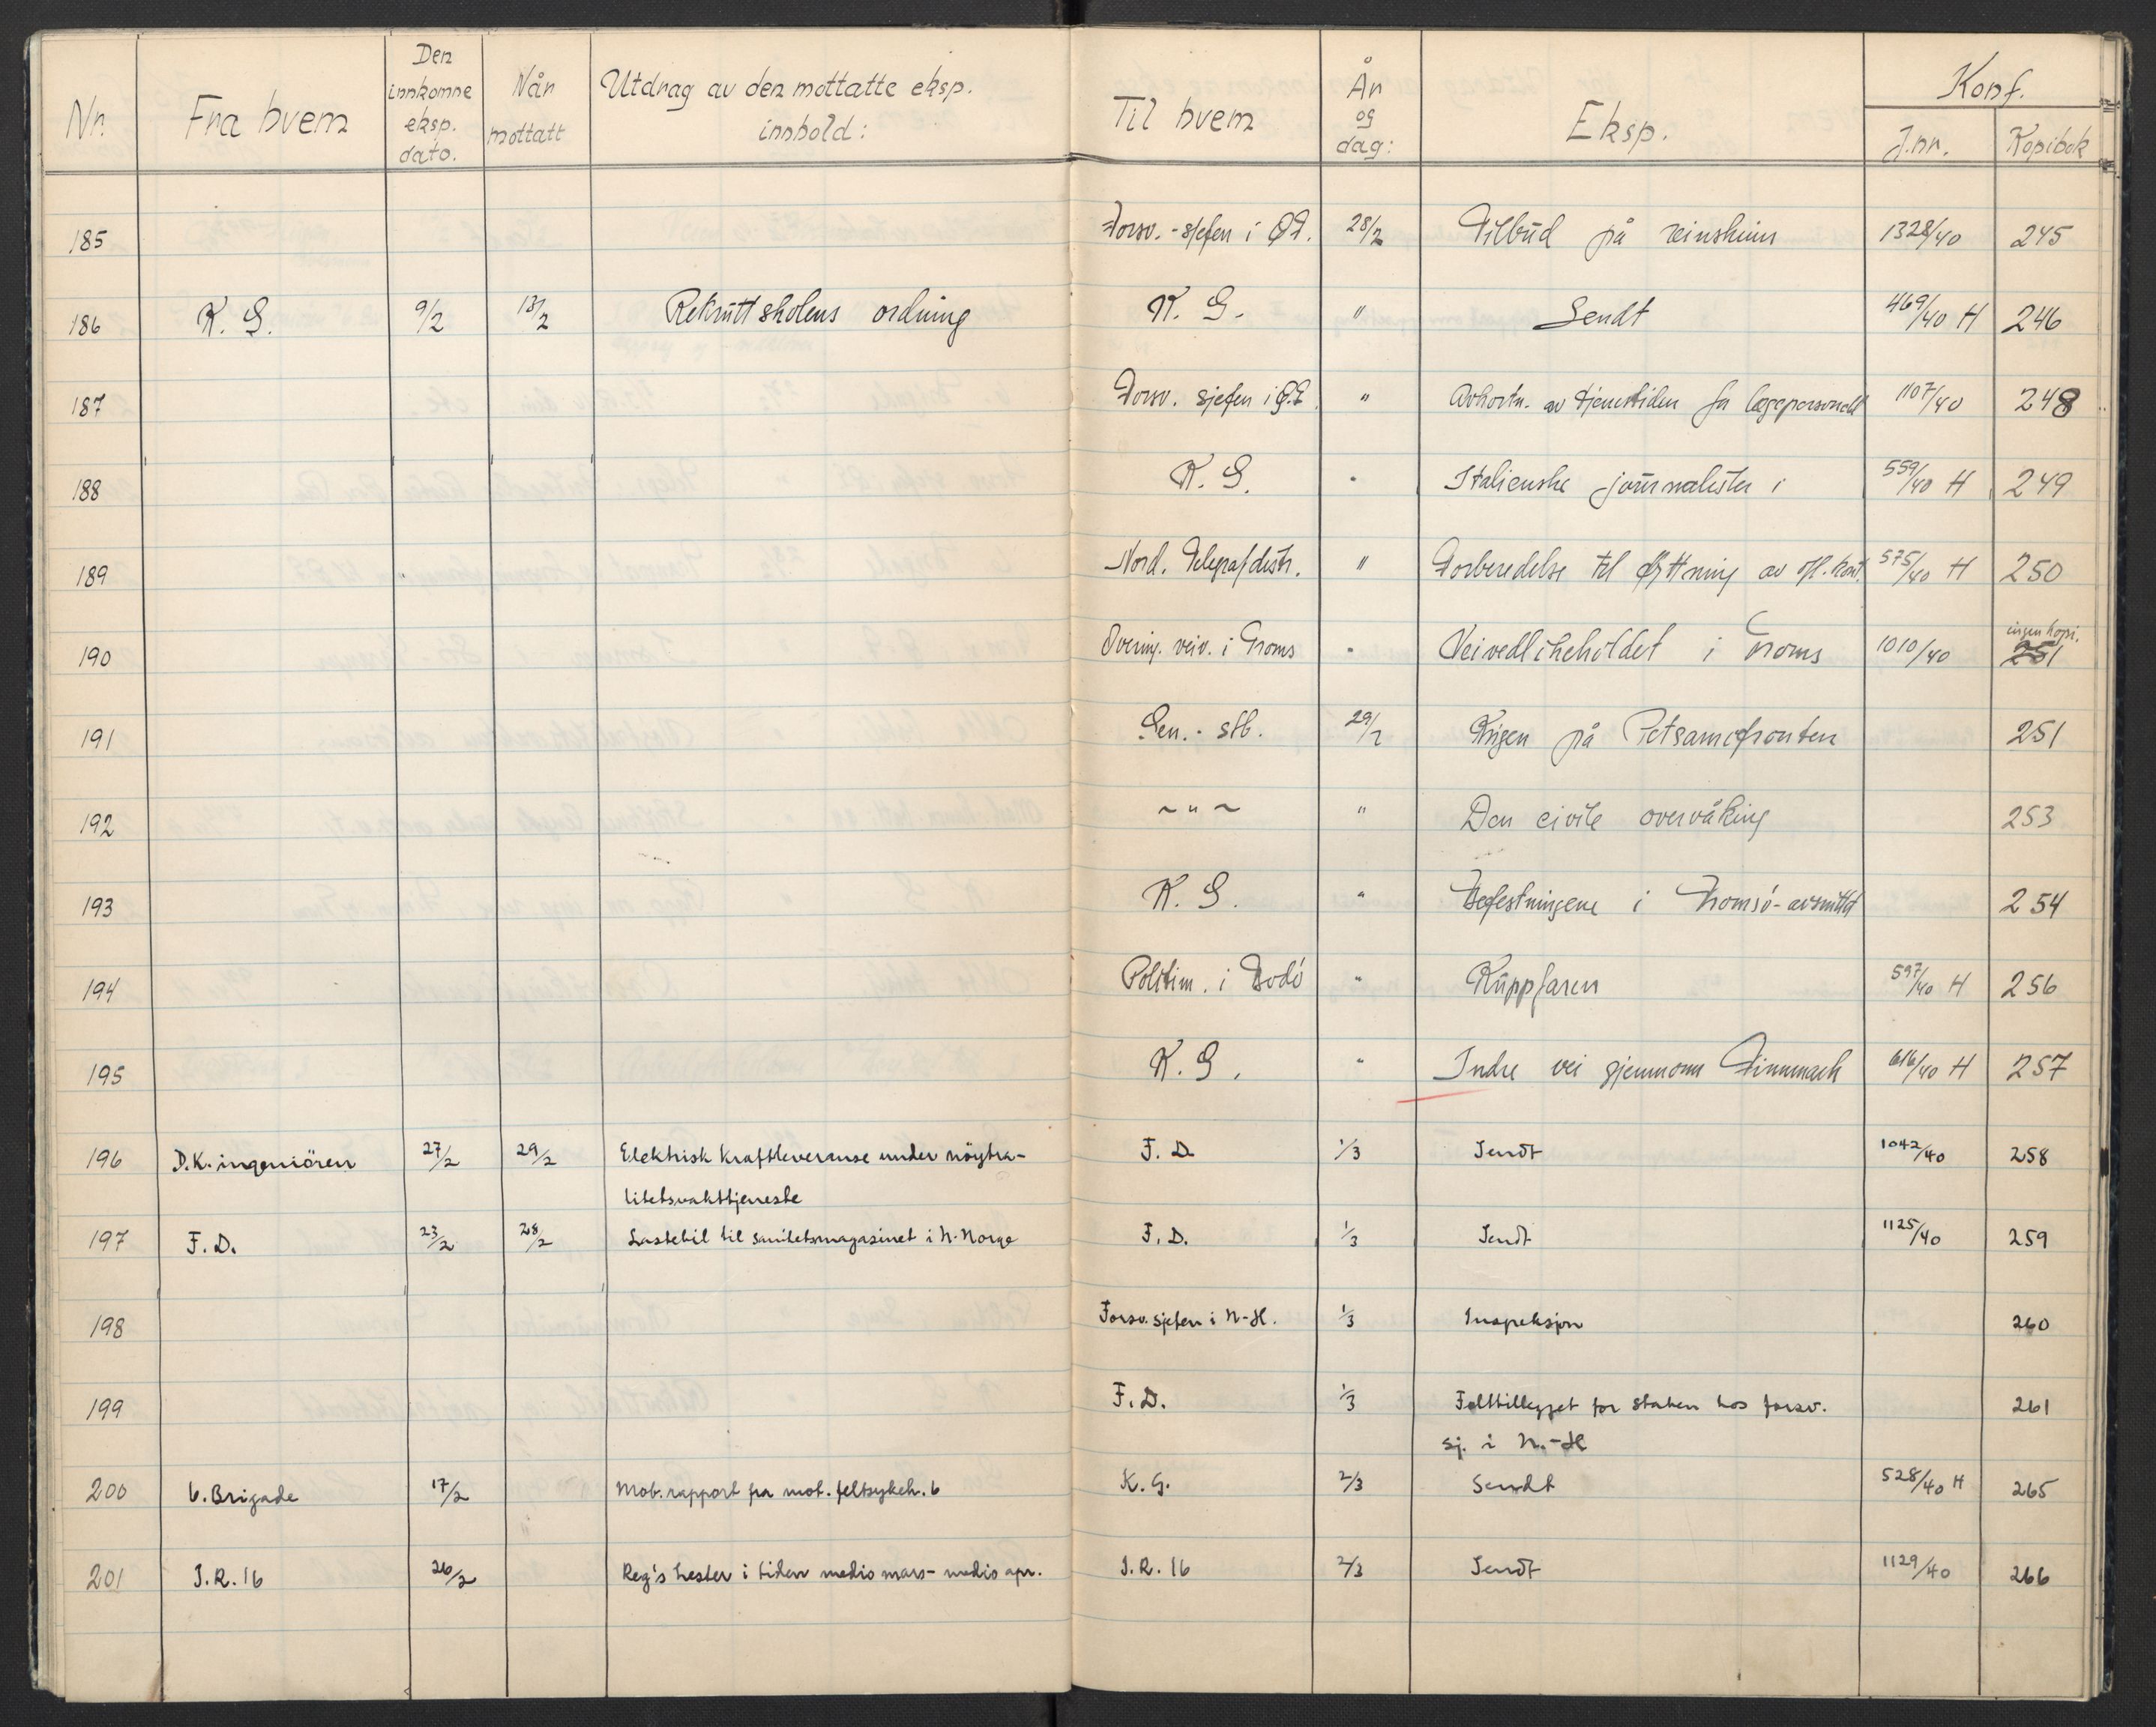 Nr. Fra hvem Den innkomne eksp. dato. Når mottatt Utdrag av den mottatte eksp. innhold: Til hvem År og dag: Eksp. Konf. J.nr. Kopibok
185 Forsv.-sjefen i ØF. 28/2 Tilbud på reinskinn 1328/40 245
186 K. G. 9/2 13/2 Rekruttskolens ordning K. G. " Sendt 469/40 H 246
187 Forsv. sjefen i Ø.F. " Avkortn. av tjenestiden for lægepersonell 1107/40 248
188 K. G. " Italienske journalister i 559/40 H 249
189 Nord. Telegrafdistr. " Forberedelse til flyttning av off. kont. 575/40 H 250
190 Overing. veiv. i Troms " Veivedlikeholdet i Troms 1010/40 ingen kopi. 251
191 Gen.-stb. 29/2 Krigen på Petsamofronten 251
192 ~ " ~ " Den civile overvåking 253
193 K. G. " Befestningene i Tromsö-avsnittet 254
194 Politim. i Bodö " Ruppfaren 597/40 H 256
195 K. G. " Indre vei gjennom Finnmark 616/40 H 257
196 D.K. ingeniören 27/2 29/2 Elektrisk kraftleveranse under nöytra- F. D. 1/3 Sendt 1042/40 258
litetsvakttjeneste
197 F. D. 23/2 28/2 Lastebil til sanitetsmagasinet i N-Norge F. D. 1/3 Sendt 1125/40 259
198 Forsv. sjefen i N-H. 1/3 Inspeksjon 260
199 F. D. 1/3 Felttillegget for staben hos forsv. 261
sj. i N.-H
200 6. Brigade 17/2 Mob. rapport fra mob. feltsykeh. 6 K. G. 2/3 Sendt 528/40 H 265
201 I.R. 16 26/2 Reg's hester i tiden medio mars - medio apr. I.R. 16 2/3 Sendt 1129/40 266